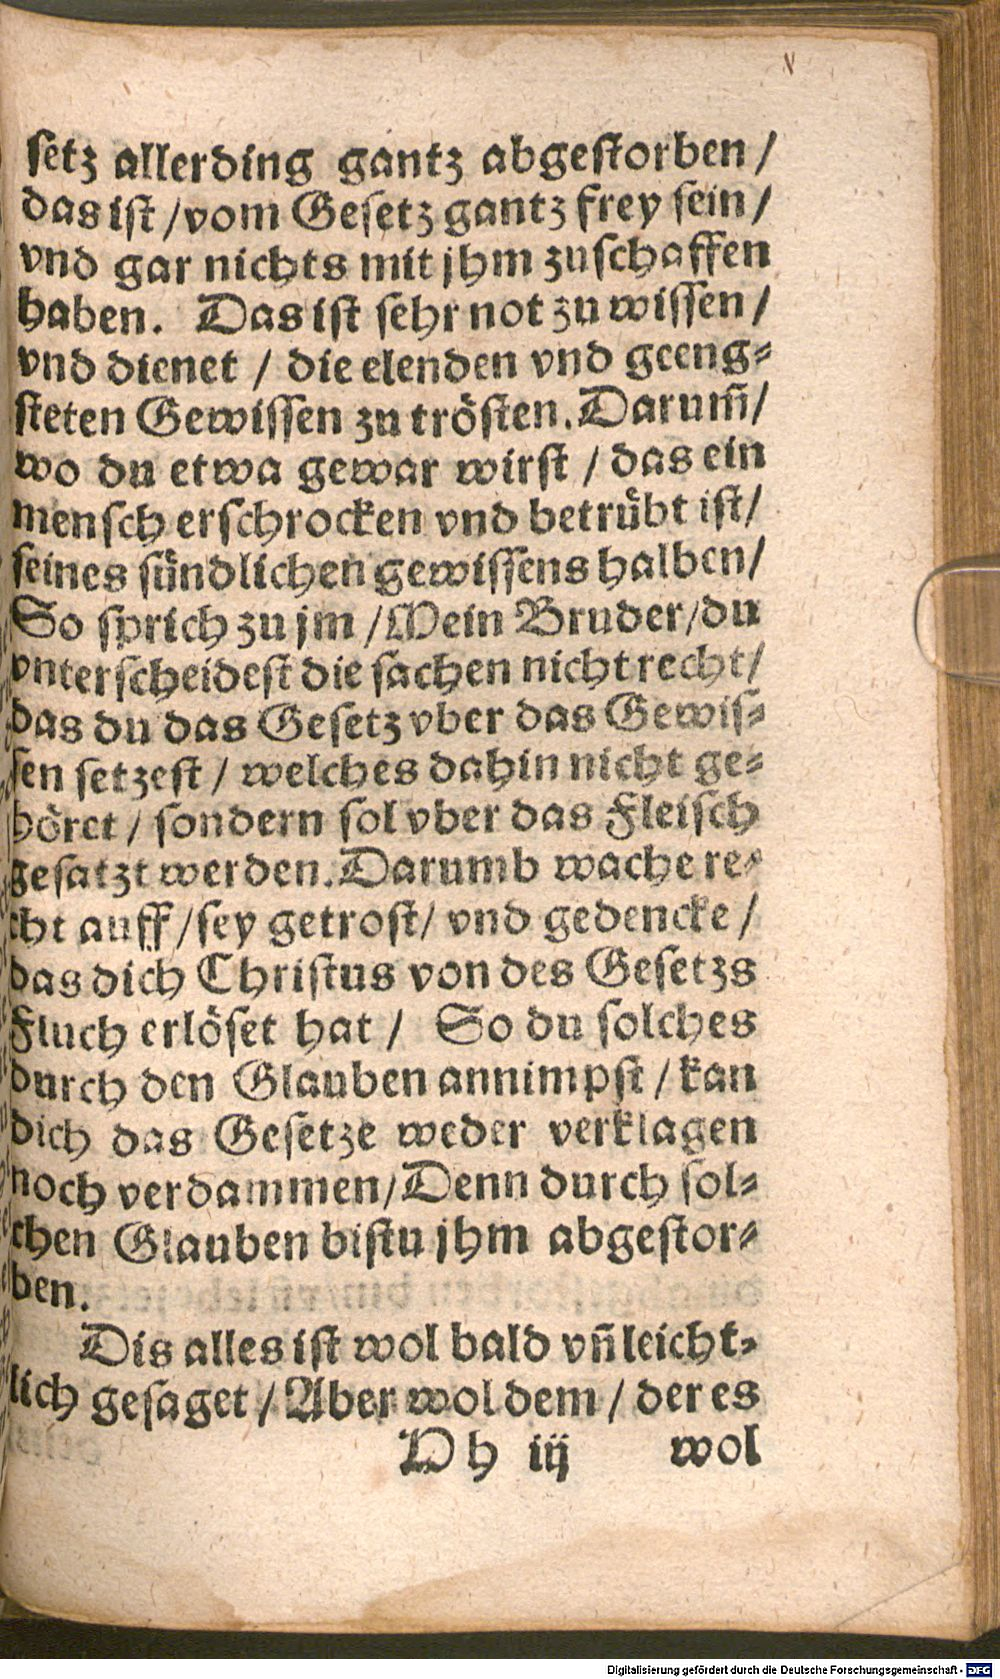 setz allerding gantz abgestorben /
das ist / vom Gesetz gantz frey sein /
vnd gar nichts mit jhm zuschaffen
haben. Das ist sehr not zu wissen /
vnd dienet / die elenden vnd geeng-
steten Gewissen zu trösten. Darum̃ /
wo du etwa gewar wirst / das ein
mensch erschrocken vnd betrübt ist /
seines sündlichen gewissens halben /
So sprich zu jm / Mein Bruder / du
vnterscheidest die sachen nicht recht /
das du das Gesetz vber das Gewis-
sen setzest / welches dahin nicht ge-
höret / sondern sol vber das Fleisch
gesatzt werden. Darumb wache re-
cht auff / sey getrost / vnd gedencke /
das dich Christus von des Gesetzs
Fluch erlöset hat / So du solches
durch den Glauben annimpst / kan
dich das Gesetze weder verklagen
noch verdammen / Denn durch sol-
chen Glauben bistu jhm abgestor-
ben.
Dis alles ist wol bald vñ leicht-
lich gesaget / Aber wol dem / der es
h iij wol
Digitalisierung gefördert durch die Deutsche Forschungsgemeinschaft - DFG